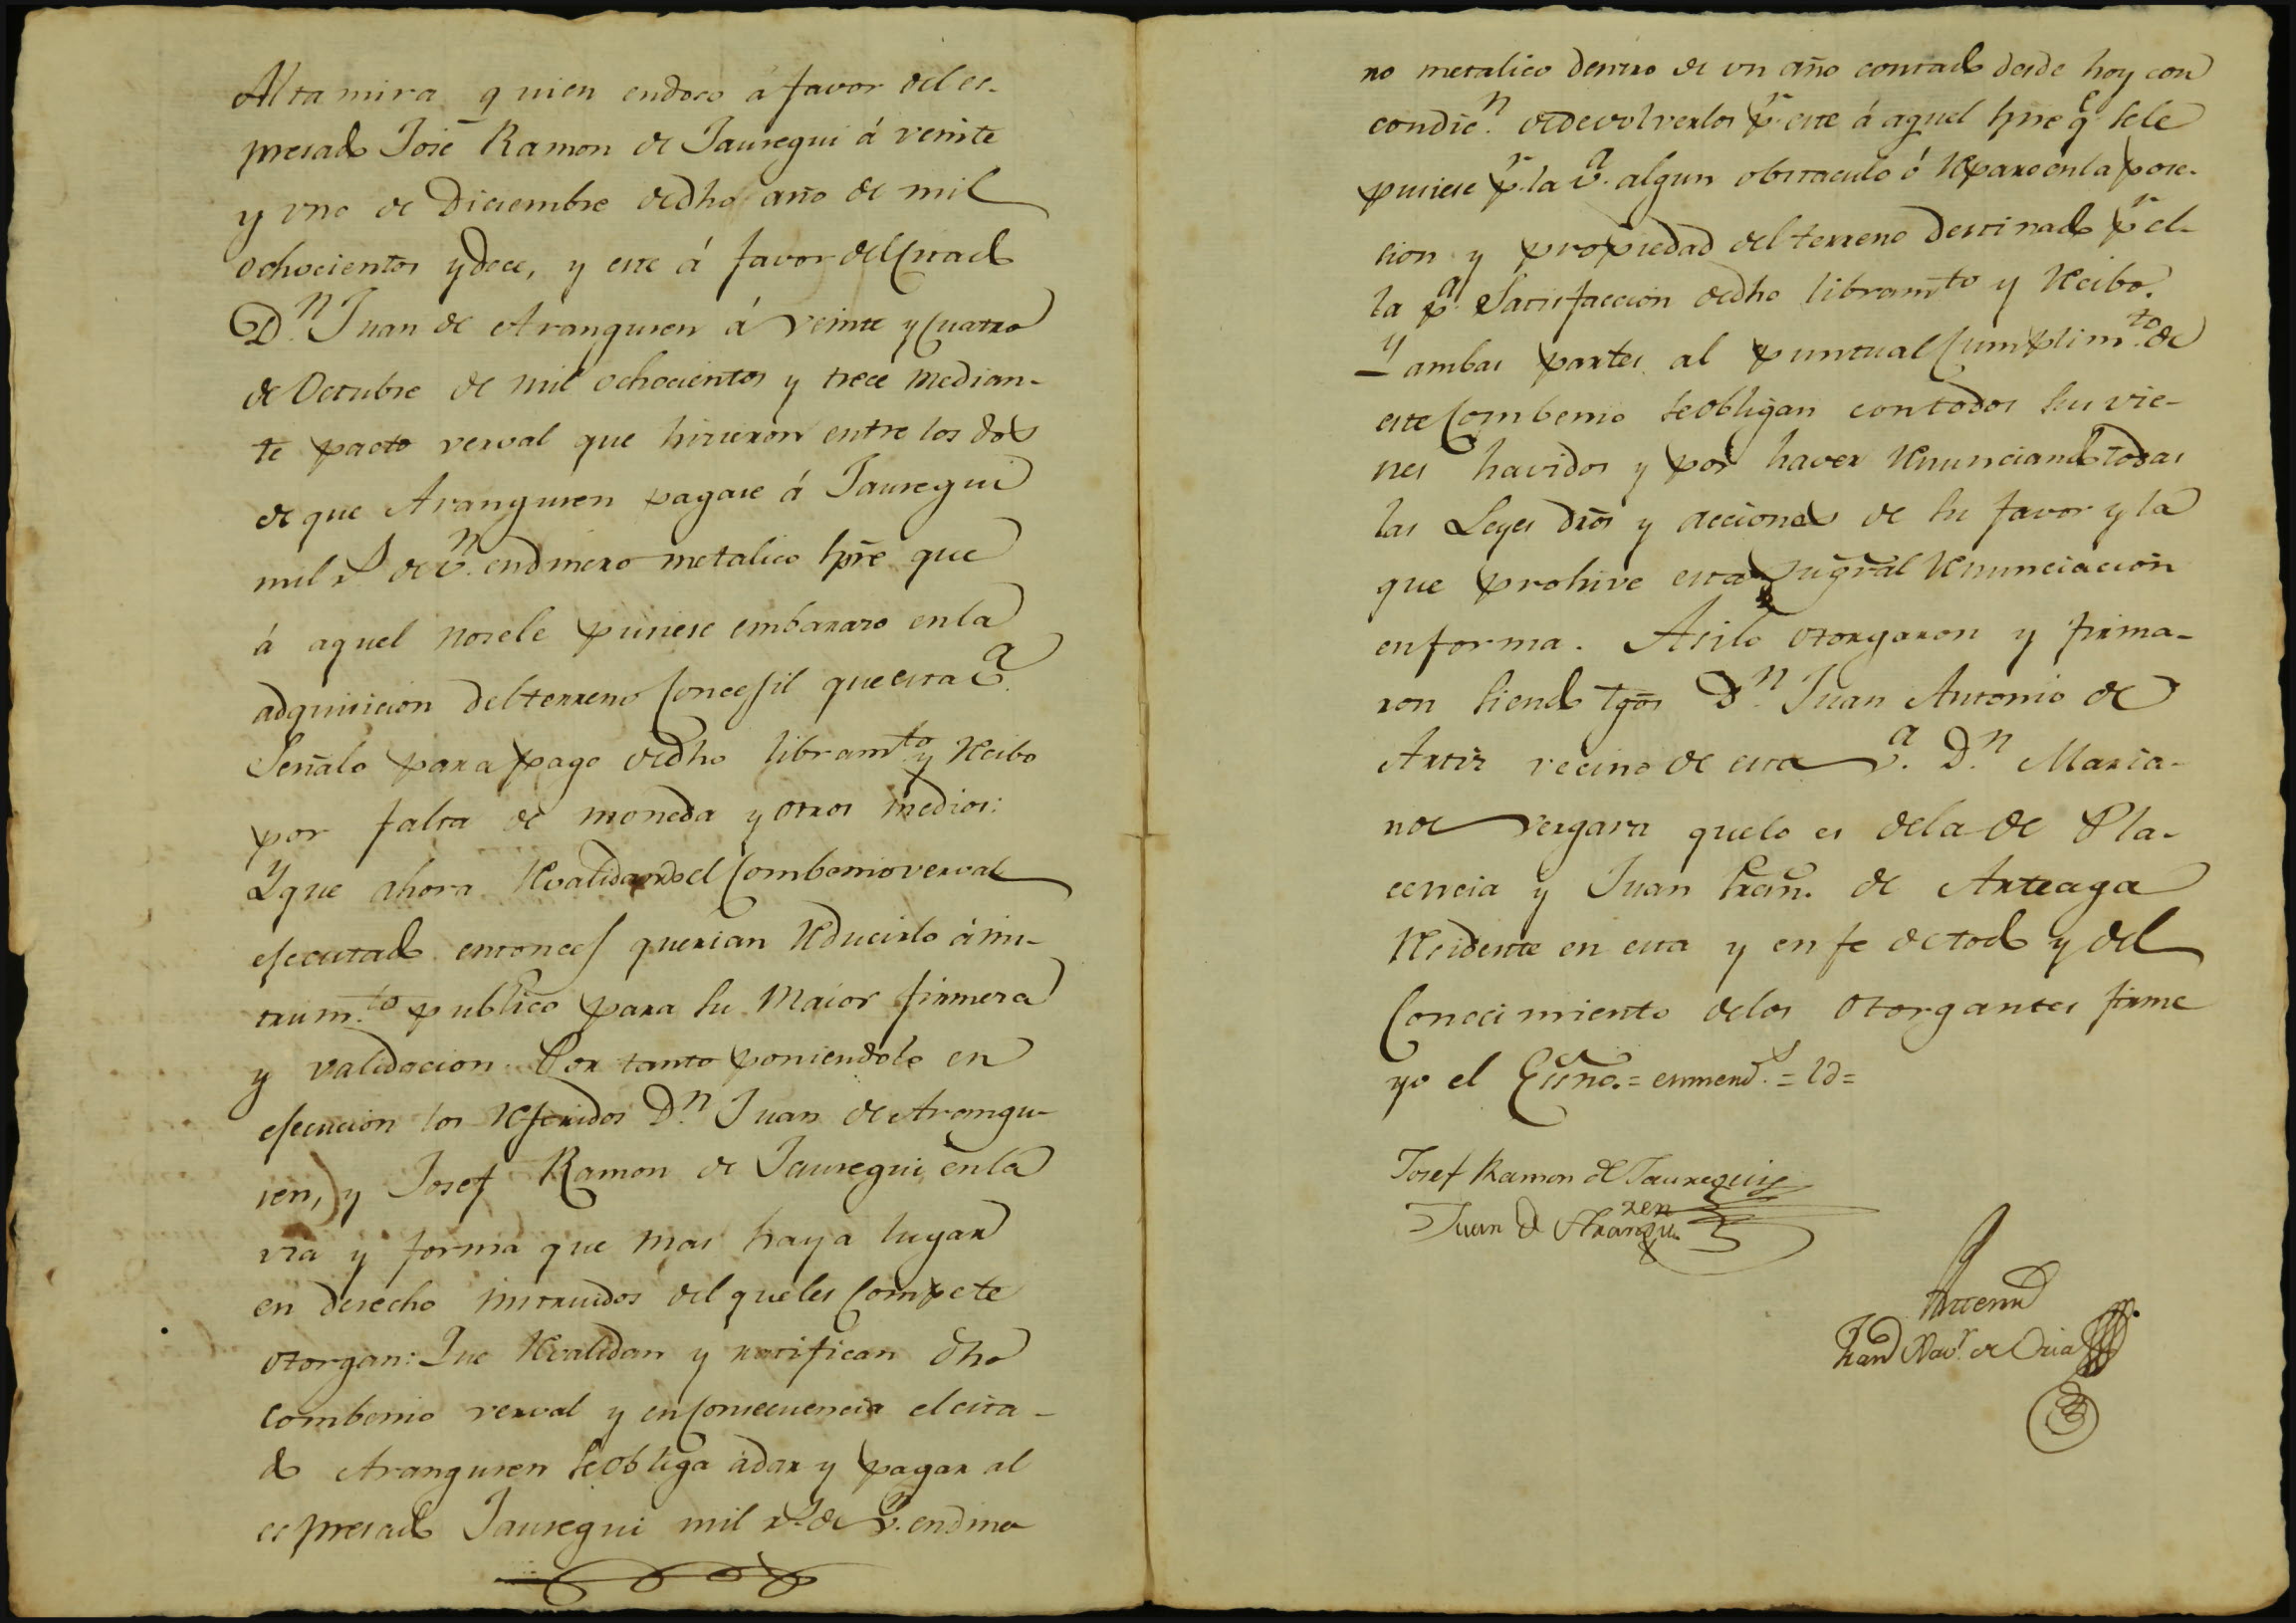 Altamira quien endoso á favor del es-
presado José Ramon de Jauregui á veinte
y uno de Diciembre de dho año de mil
ochocientos y doce, y este á favor del citado
D.n Juan de Aranguren á veinte y cuatro
de Octubre de mil ochocientos y trece median-
te pacto verval que hicieron entre los dos
de que Aranguren pagase á Jauregui
mil r.s de v.n en dinero metalico spre que
á aquel no se le pusiese embarazo en la
adquisicion del terreno Concegil que esta v.a
Señaló para pago de dho libram.to y Recibo
por falta de moneda y otros medios:
Y que ahora Revalidando el Combenio verval
ejecutado entonces querian Reducirlo á ins-
trum.to publico para su Maior firmeza
y validacion. Por tanto poniendolo en
ejecucion los Referidos D.n Juan de Arangu-
ren, y Josef Ramon de Jauregui en la
via y forma que mas haya lugar
en derecho instruidos del que les Compete
otorgan: Que Revalidan y ratifican dho
combenio verval y en Consecuencia el cita-
do Aranguren se obliga á dar y pagar al
espresado Jauregui mil r.s de v.n en dine-
ro metalico dentro de un año contado desde hoy con
condic.n de devolverlos p.r este á aquel spre q.e se le
pusiese p.r la v.a algun obstaculo ó Reparo en la pose-
sion y propiedad del terreno destinado p.r el-
la p.a Satisfaccion de dho libram.to y Recibo.
Y ambas partes al puntual Cumplim.to de
este Combenio se obligan con todos sus vie-
nes havidos y por haver Renunciando todas
las Leyes dros y acciones de su favor y la
que prohive esta gral Renunciacion
en forma. Asi lo otorgaron y firma-
ron siendo tgos D.n Juan Antonio de
Artiz vecino de esta v.a D.n Maria-
no de vergara que lo es de la de Pla-
cencia y Juan Fran. de Arteaga
Residente en esta y en fe de todo y del
Conocimiento de los Otorgantes firme
yo el Essno. = enmend.s = ld =
Josef Ramon de Jauregui
Juan de Aranguren
Antemi
Fran Xav.r de Oria